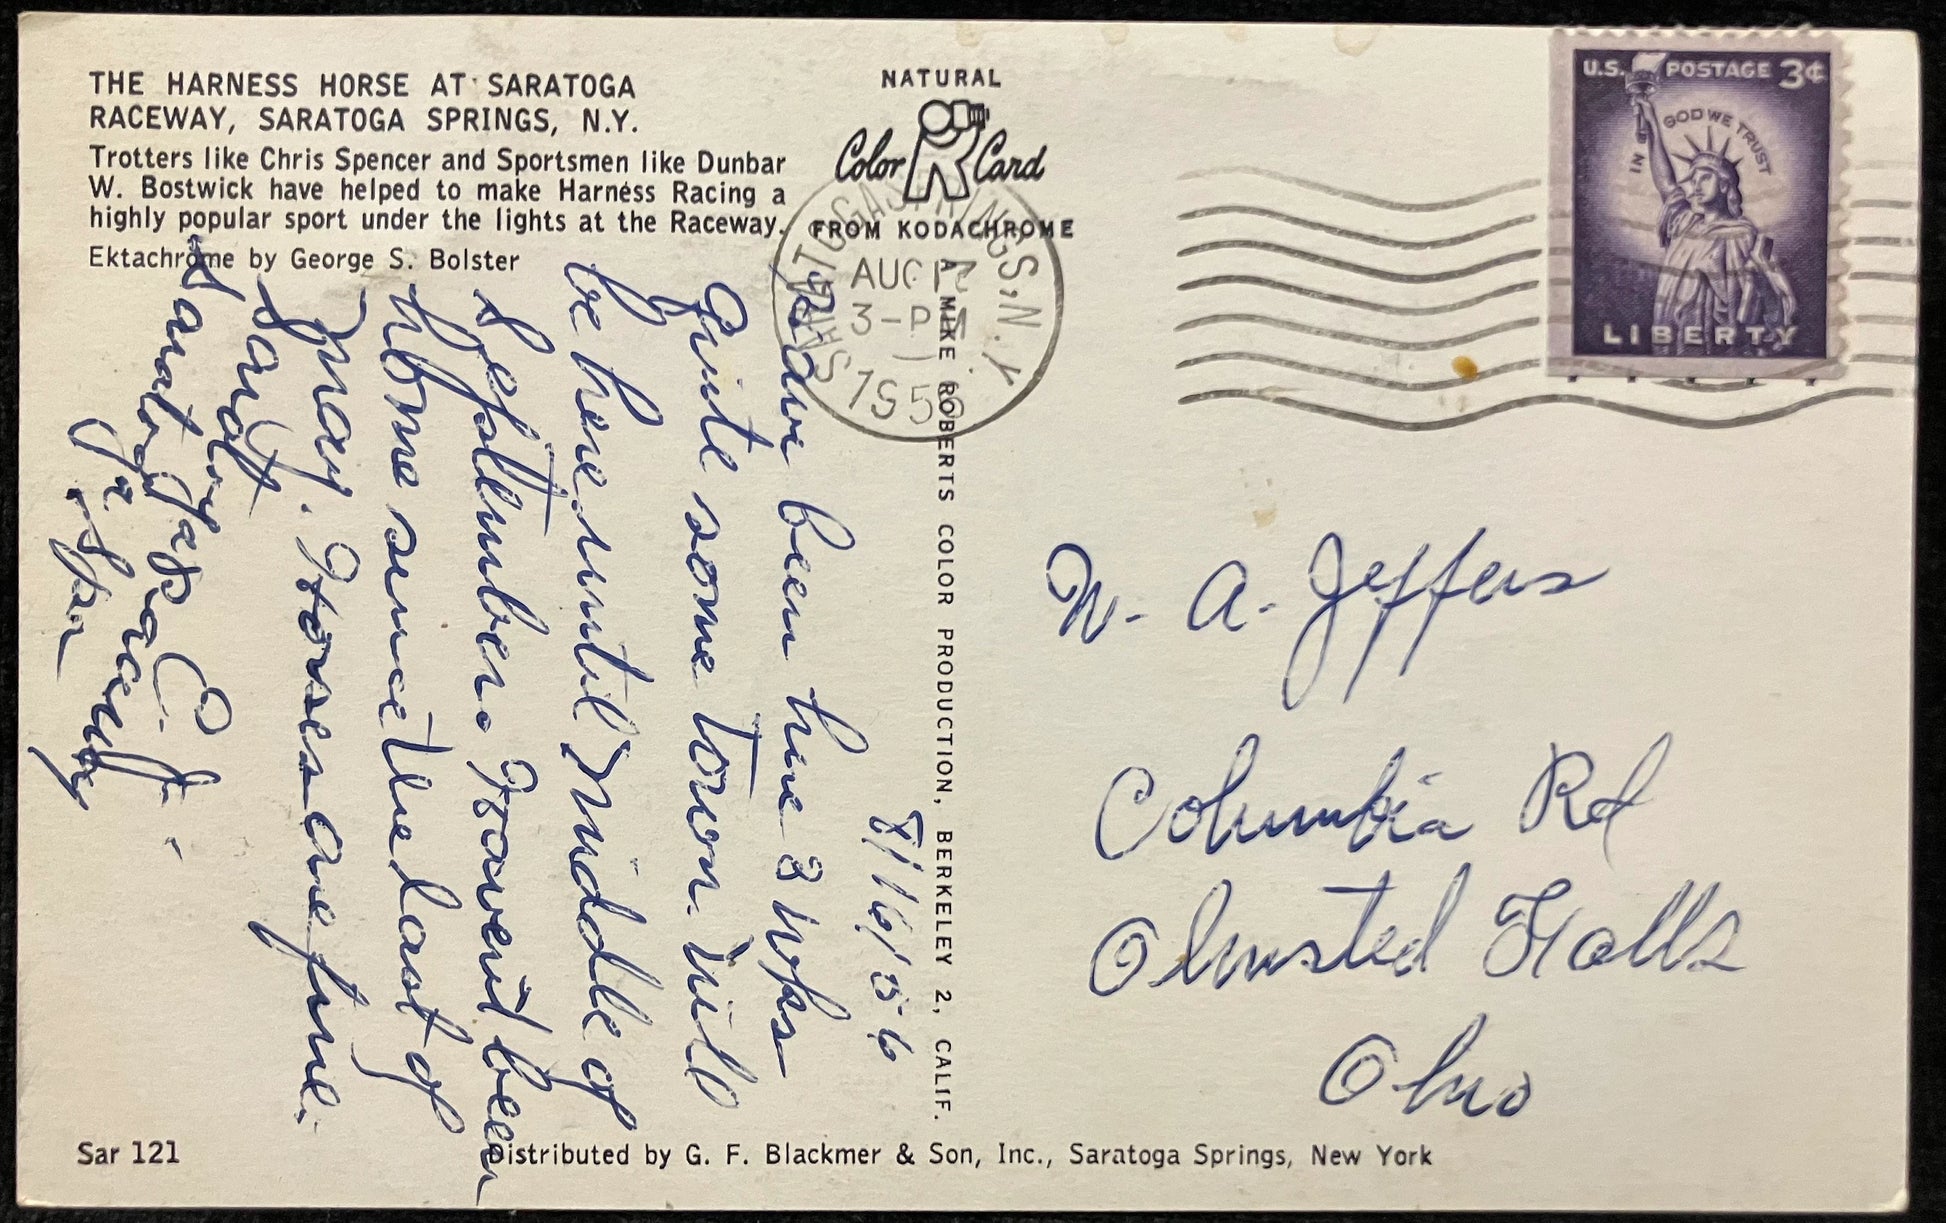 THE HARNESS HORSE AT SARATOGA
RACEWAY, SARATOGA SPRINGS, N.Y.
Trotters like Chris Spencer and Sportsmen like Dunbar
W. Bostwick have helped to make Harness Racing a
highly popular sport under the lights at the Raceway.
Ektachrome by George S. Bolster
NATURAL
Color Card
FROM KODACHROME
A MIKE ROBERTS COLOR PRODUCTION, BERKELEY 2, CALIF.
SARATOGA SPRINGS, N.Y.
AUG
3-PM
1956
U.S. POSTAGE 3¢
IN GOD WE TRUST
LIBERTY
8/16/56
been here 3 wks
Quite some town. Will
be here until Middle of
September. Havent been
home since the last of
May. Horses are fine.
Saratoga
Saratoga Spa
W. A. Jeffers
Columbia Rd
Olmsted Falls
Ohio
Sar 121
Distributed by G. F. Blackmer & Son, Inc., Saratoga Springs, New York